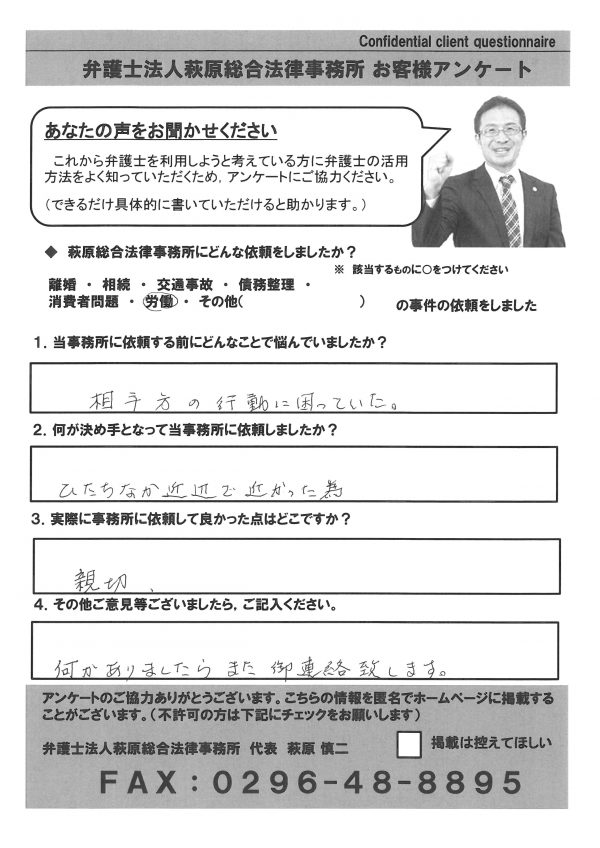 Confidential client questionnaire
弁護士法人萩原総合法律事務所 お客様アンケート
あなたの声をお聞かせください
これから弁護士を利用しようと考えている方に弁護士の活用
方法をよく知っていただくため，アンケートにご協力ください。
（できるだけ具体的に書いていただけると助かります。）
◆ 萩原総合法律事務所にどんな依頼をしましたか？
※ 該当するものに○をつけてください
離婚 ・ 相続 ・ 交通事故 ・ 債務整理 ・
消費者問題 ・ 労働 ・ その他（ ） の事件の依頼をしました
１．当事務所に依頼する前にどんなことで悩んでいましたか？
相手方の行動に困っていた。
２．何が決め手となって当事務所に依頼しましたか？
ひたちなか近辺で近かった為
３．実際に事務所に依頼して良かった点はどこですか？
親切、
４．その他ご意見等ございましたら，ご記入ください。
何かありましたらまた御連絡致します。
アンケートのご協力ありがとうございます。こちらの情報を匿名でホームページに掲載する
ことがございます。（不許可の方は下記にチェックをお願いします）
弁護士法人萩原総合法律事務所 代表 萩原 慎二 掲載は控えてほしい
ＦＡＸ：０２９６－４８－８８９５